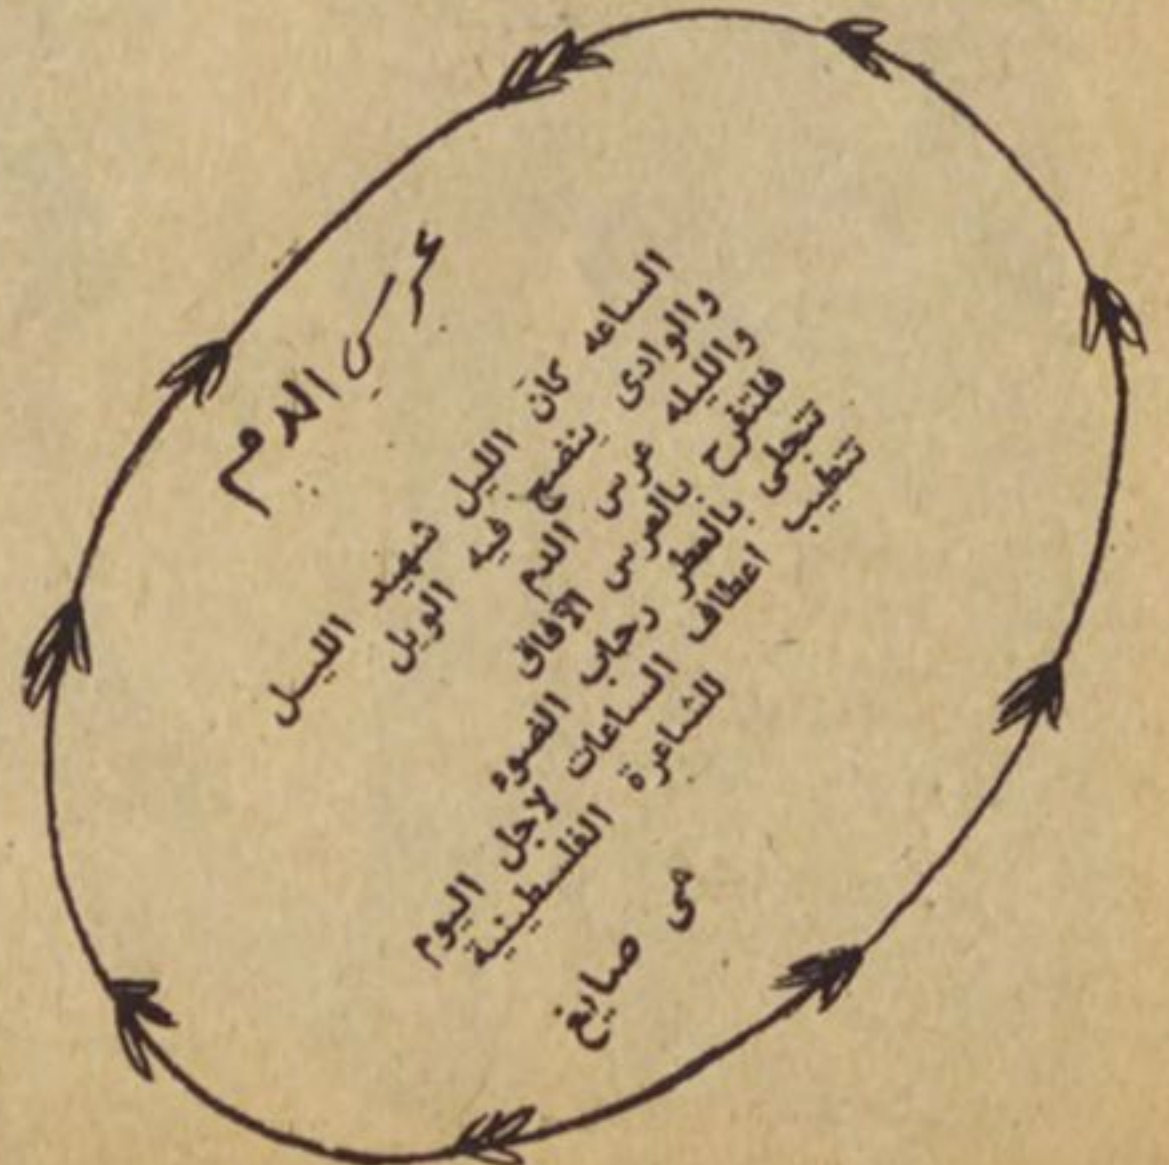 عرس الدم
الساعه كان الليل شهيد الليل
والوادى ينضح فيه الويل
والليله عرس الدم
فلتفرح بالعرس الآفاق
تتجلى بالعطر رحاب الضوء
تتطيب اعطاف الساعات لاجل اليوم
للشاعرة الفلسطينية
مى صايغ